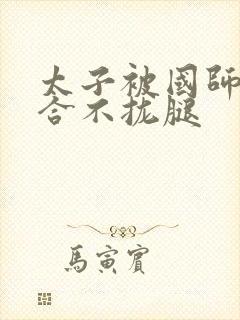 太子被國師
合不拢腿
馬寅賓